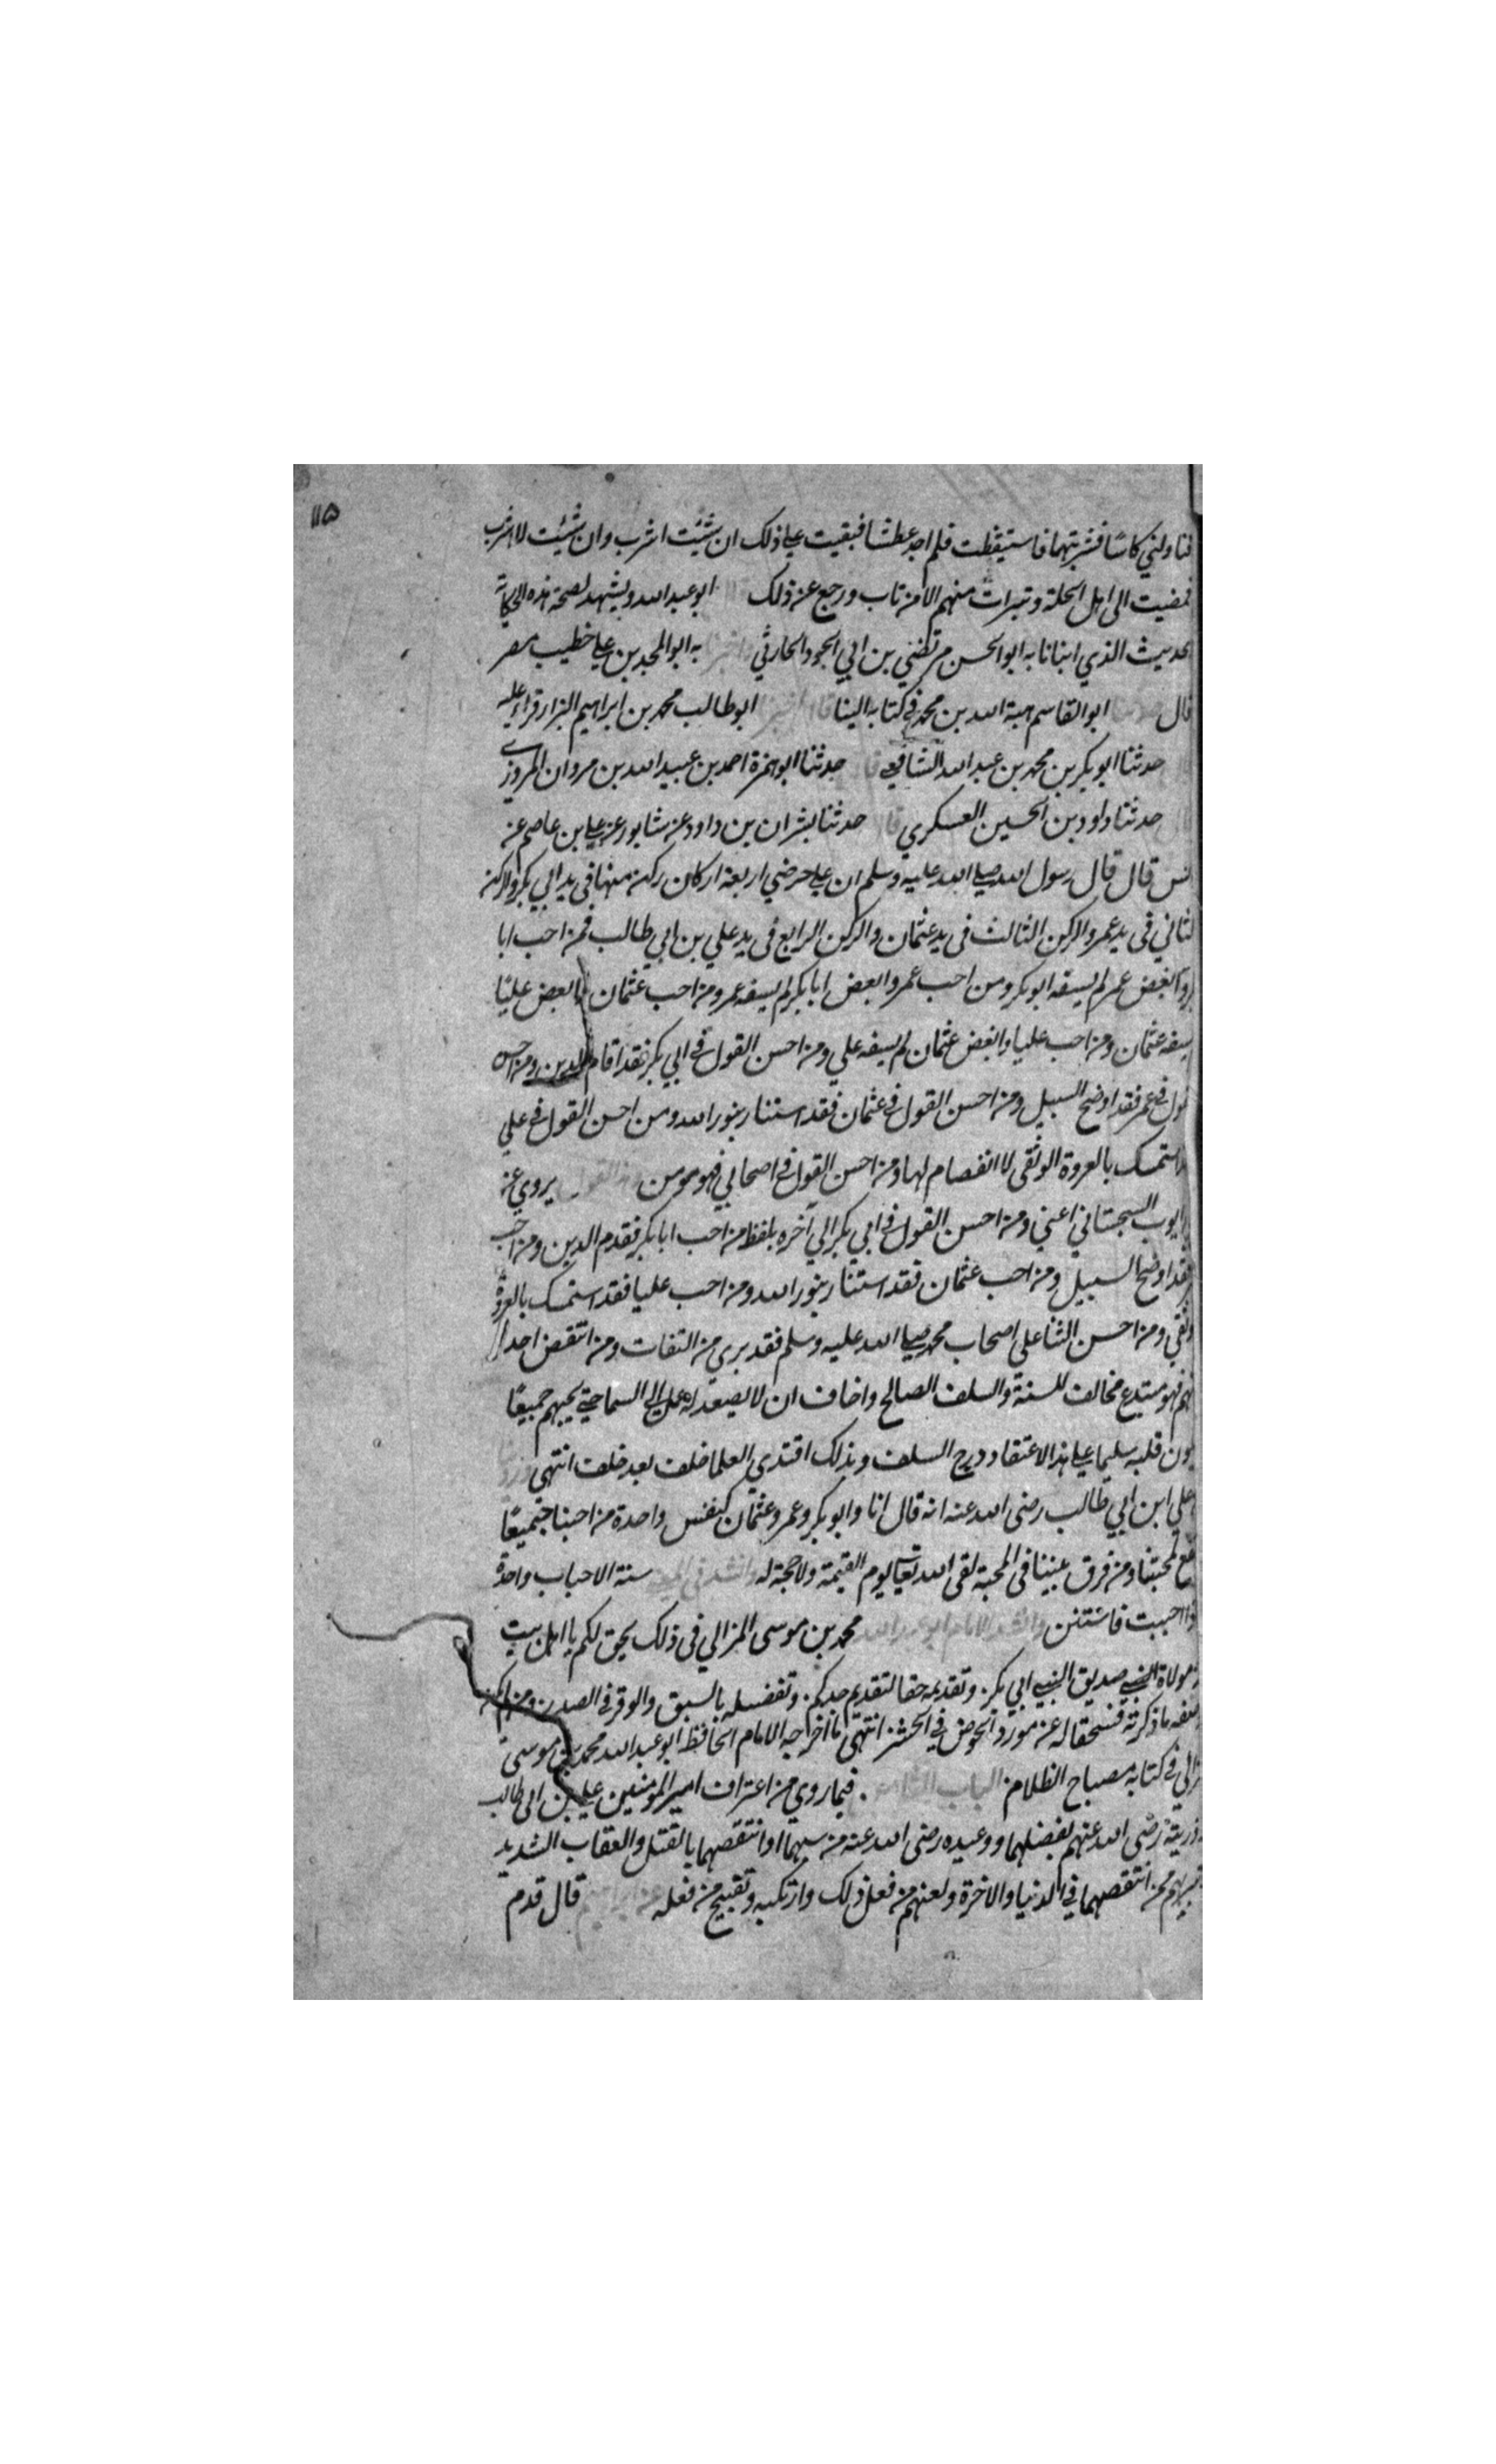 ١١٥
فناولني كاسًا فشربتها فاستيقظت فلم اجد عطشا فبقيت علي ذلك ان شئيت اشرب وان شئيت لا اشرب
فمضيت الى اهل الحلة وتبرات منهم الا من تاب ورجع عن ذلك ابو عبد الله ويشهد لصحة هذه الحكاية
الحديث الذي انبانا به ابو الحسن مرتضي بن ابي الجود الحارثي اخبرنا به ابو المجد بن علي خطيب مصر
قال ابو القاسم هبة الله بن محمد في كتابه الينا ابو طالب محمد بن ابراهيم البزار قراءة عليه
حدثنا ابو بكر بن محمد بن عبد الله الشافعي قال حدثنا ابو حمزة احمد بن عبيد الله بن مروان المروزي
حدثنا داود بن الحسين العسكري قال حدثنا بشران بن داود عن شابور عن علي بن عاصم عن
انس قال قال رسول الله صلي الله عليه وسلم ان علي حوضي اربعة اركان ركن منها في يد ابي بكر والركن
الثاني في يد عمر والركن الثالث في يد عثمان والركن الرابع في يد علي بن ابي طالب فمن احب ابا
بكر وابغض عمر لم يسقه ابو بكر ومن احب عمر وابغض ابا بكر لم يسقه عمر ومن احب عثمان وابغض عليًا
يسقه عثمان ومن احب عليا وابغض عثمان لم يسقه علي ومن احسن القول في ابي بكر فقد اقام الدين ومن احسن
القول في عمر فقد اوضح السبيل ومن احسن القول في عثمان فقد استنار بنور الله ومن احسن القول في علي
استمسك بالعروة الوثقى لا انفصام لها ومن احسن القول في اصحابي فهو مومن هذا القول يروي عن
ايوب السجستاني اعني ومن احسن القول في ابي بكر الي آخره بلفظ من احب ابا بكر فقد قدم الدين ومن احب
فقد اوضح السبيل ومن احب عثمان فقد استنار بنور الله ومن احب عليا فقد استمسك بالعروة
الوثقي ومن احسن الثنا علي اصحاب محمد صلي الله عليه وسلم فقد بري من النفاق ومن انتقص احدا
منهم فهو مبتدع مخالف للسنة والسلف الصالح واخاف ان لا يصعد له عمل الي السما حتي يحبهم جميعًا
يكون قلبه سليما علي هذا الاعتقاد درج السلف وبذلك اقتدي العلما خلف بعد خلف انتهي
علي ابن ابي طالب رضى الله عنه انه قال انا وابو بكر وعمر وعثمان كنفس واحدة من احبنا جميعًا
لمحبتنا ومن فرق بيننا في المحبة لقى الله تعالى يوم القيمة ولا حجة له وانشد في المعنى سنة الاحباب واحدة
فاذا احببت فاستنن وانشد الامام ابو عبد الله محمد بن موسى المزالي في ذلك يحق لكم يا اهل بيت
صديق النبي ابي بكر. وتقديمه حقا لتقديم جدكم. وتفضيله بالسبق والوقر في الصدر. ومن لم يكن
ما ذكرته فسحقا له عن مورد الحوض في الحشر انتهي ما اخرجه الامام الحافظ ابو عبد الله محمد بن موسى
المزالي في كتابه مصباح الظلام الباب الثامن. فيما روي من اعتراف امير المومنين علي بن ابي طالب
وذريته رضى الله عنهم بفضلهما ووعيده رضى الله عنه من سبهما او انتقصهما بالقتل والعقاب الشديد
ممن انتقصهما في الدنيا والاخرة ولعنهم من فعل ذلك وارتكبه وتقبيح من فعله قال قدم